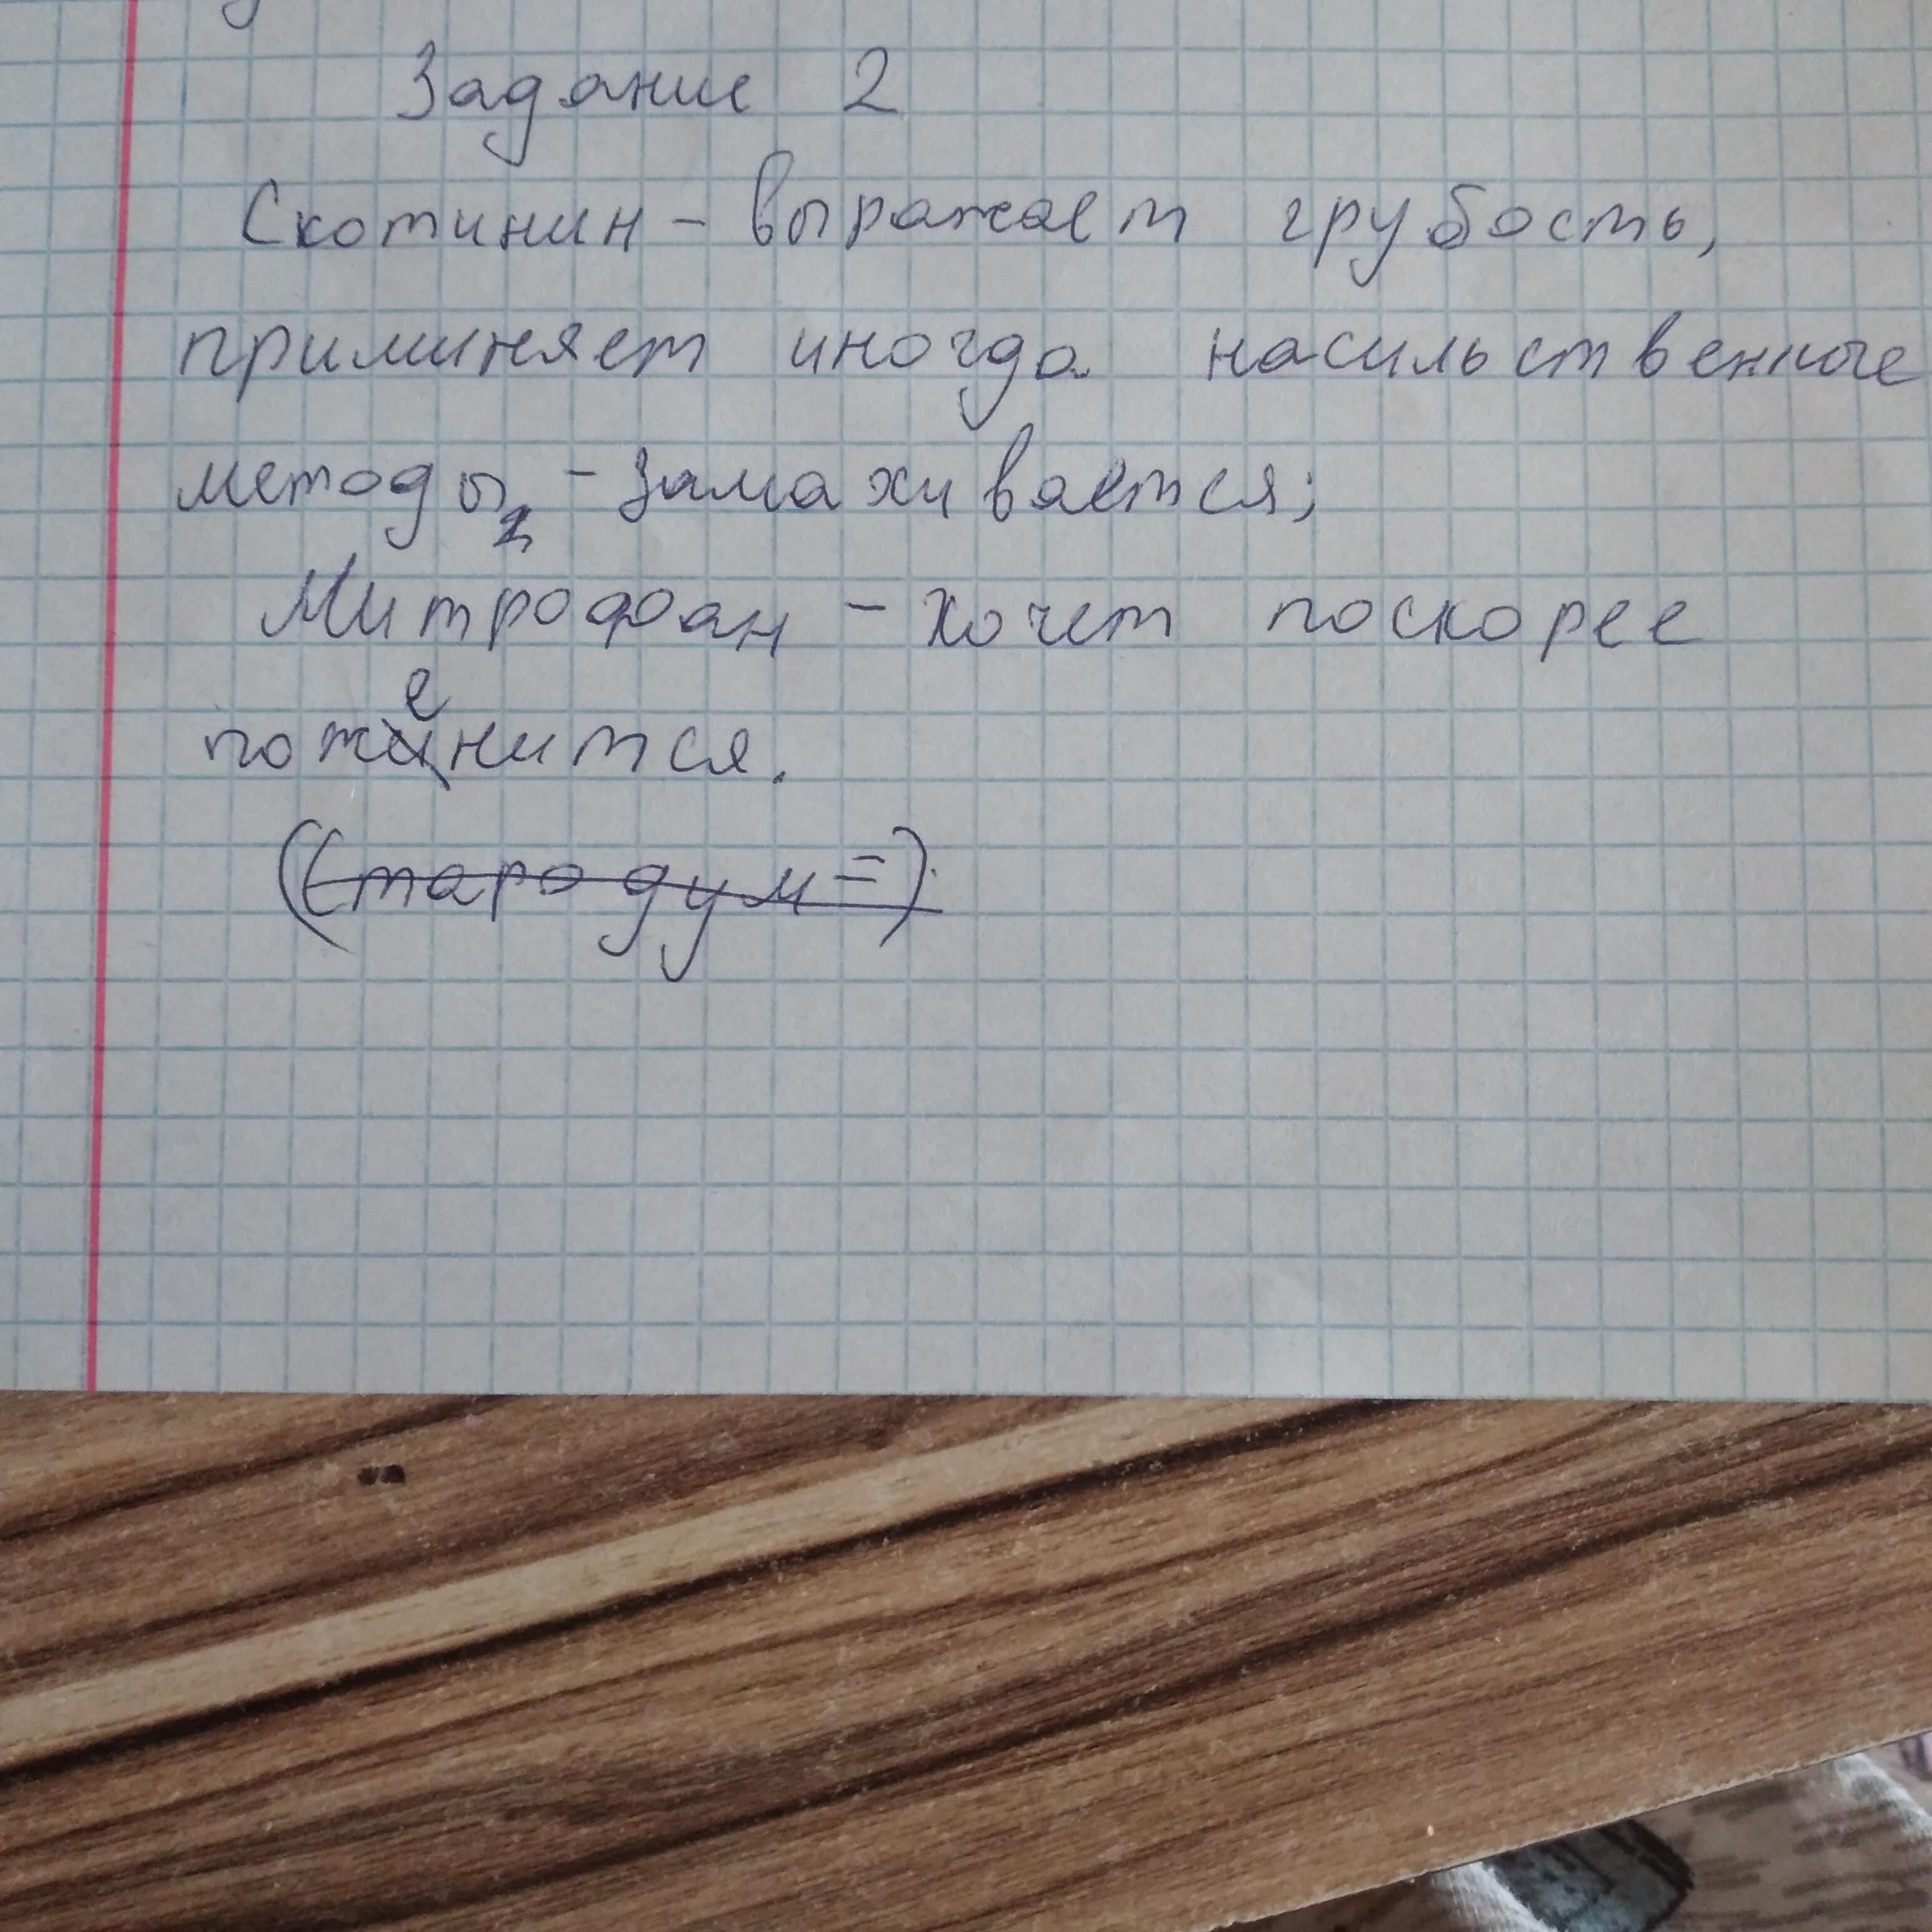 Задание 2
Скотинин - выражает грубость,
приминяет иногда насильственные
методы, - замахивается;
Митрофан - хочет поскорее
поженится.
(Стародум =).